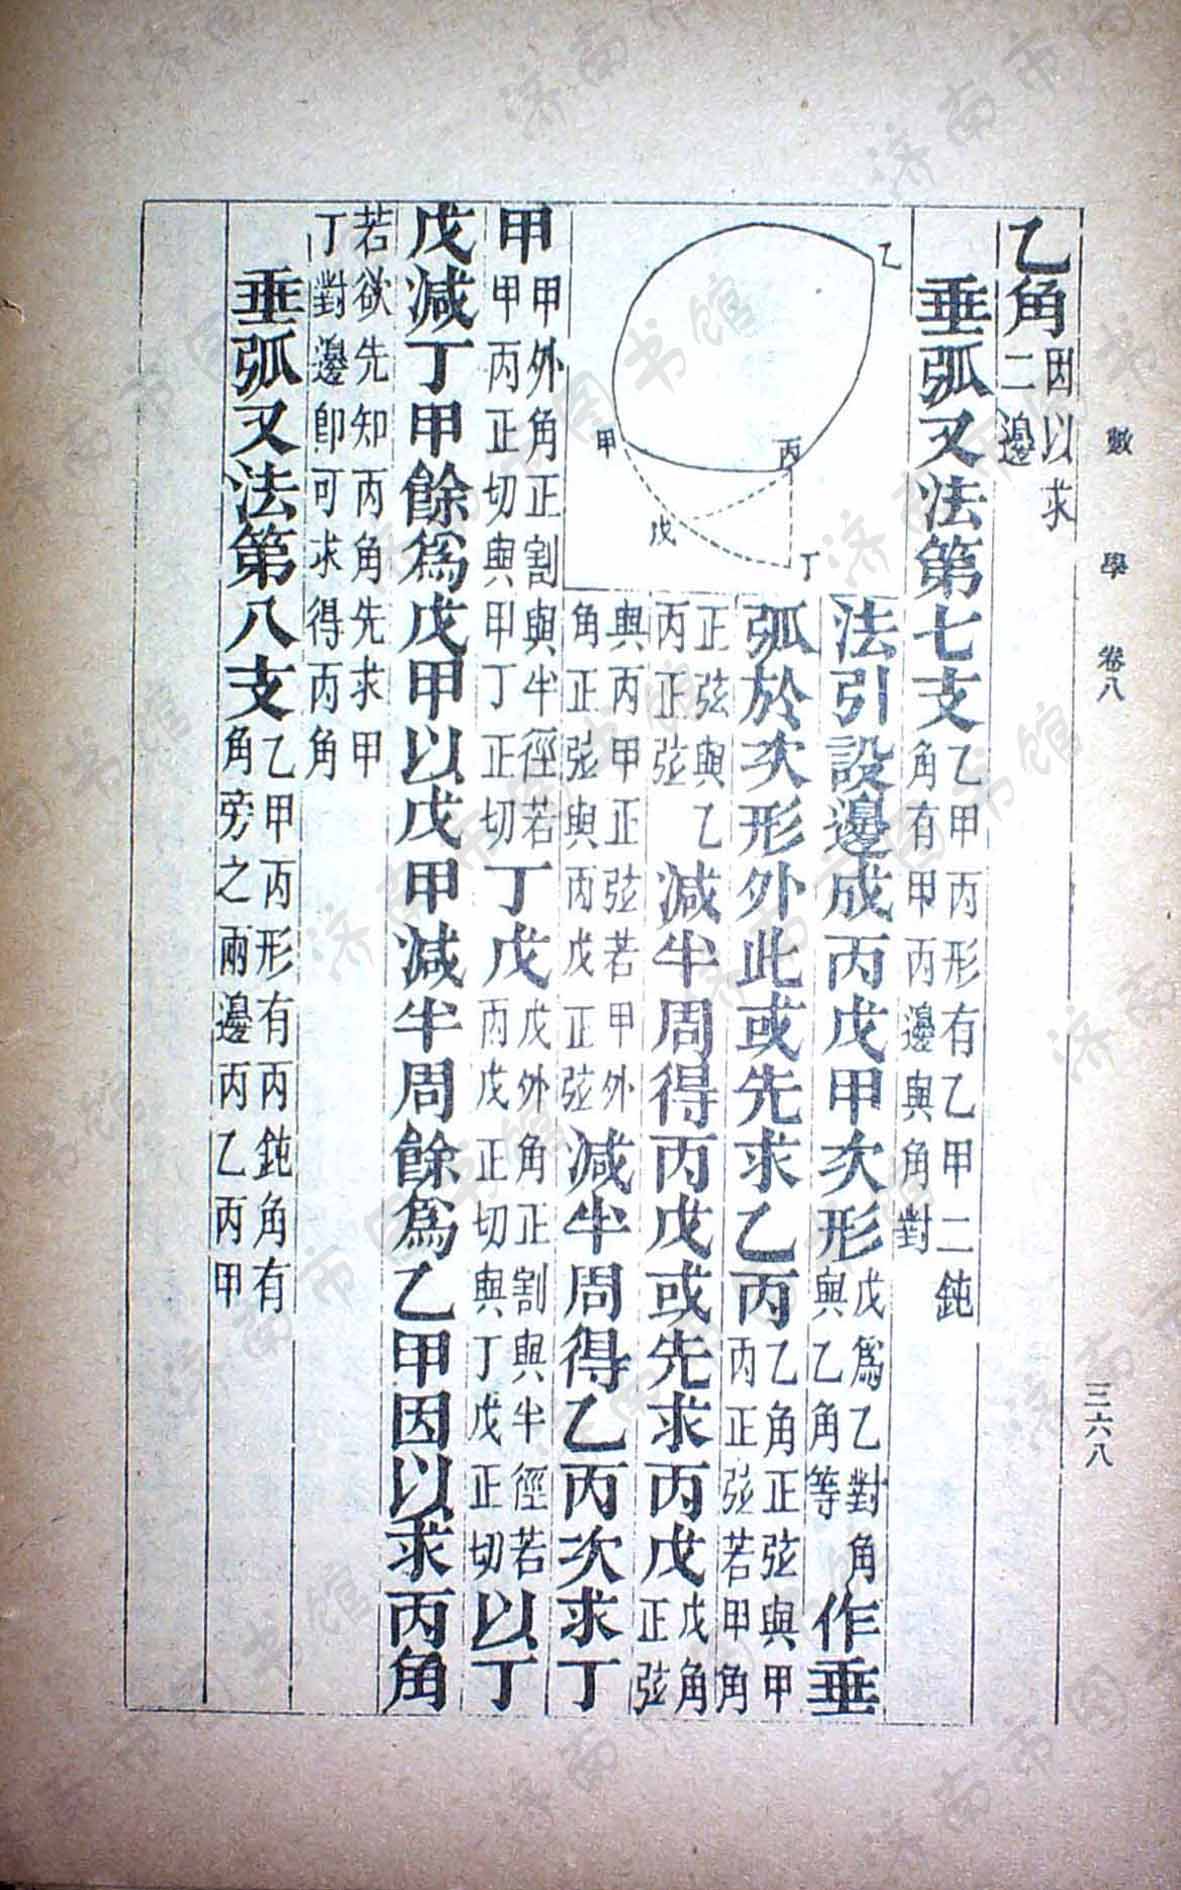 數學 卷八 三六八
乙角因以求二邊
垂弧又法第七支乙甲丙形有乙甲二鈍角有甲丙邊與角對
法引設邊成丙戊甲次形戊爲乙對角與乙角等作垂
弧於次形外此或先求乙丙乙角正弦與甲丙正弦若甲角
正弦與乙丙正弦減半周得丙戊或先求丙戊戊角正弦
與丙甲正弦若甲外角正弦與丙戊正弦減半周得乙丙次求丁
乙
甲
丙
戊
丁
甲甲外角正割與半徑若甲丙正切與甲丁正切丁戊戊外角正割與半徑若丙戊正切與丁戊正切以丁
戊減丁甲餘爲戊甲以戊甲減半周餘爲乙甲因以求丙角
若欲先知丙角先求甲丁對邊卽可求得丙角
垂弧又法第八支乙甲丙形有丙鈍角有角旁之兩邊丙乙丙甲
济南市图书馆